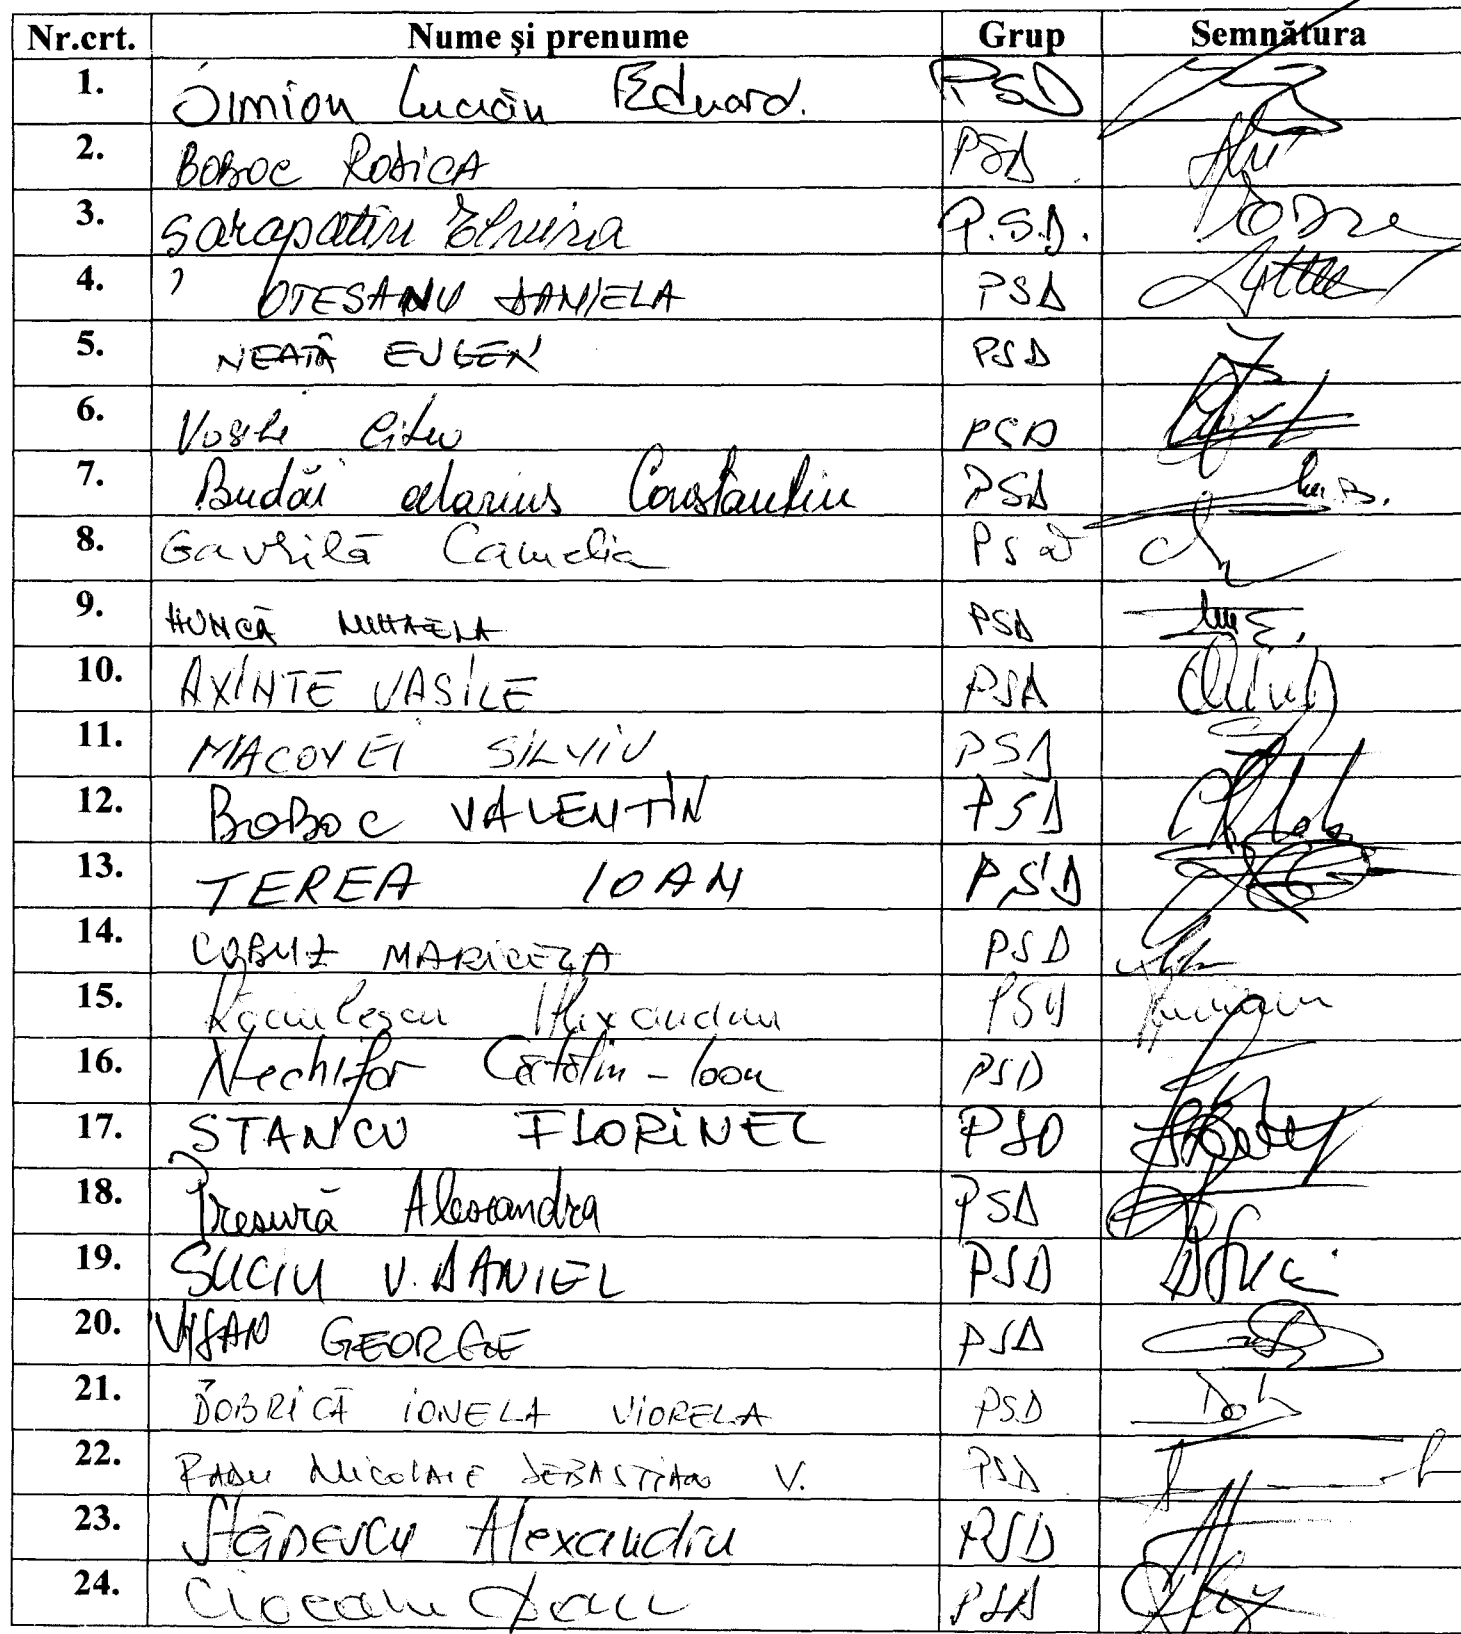 Nr.crt. Nume și prenume Grup Semnătura
1. Simion Lucian Eduard. PSD
2. BOBOC RODICA PSD
3. Sarapatin Elvira P.S.D. DOBRE
4. OTESANU DANIELA PSD
5. NEAȚĂ EUGEN PSD
6. Vasile Cîtu PSD
7. Budăi Marius Constantin PSD M.B.
8. Gavrilă Camelia PSD
9. HUNCĂ MIHAELA PSD
10. AXINTE VASILE PSD
11. MACOVEI SILVIU PSD
12. BOBOC VALENTIN PSD
13. TEREA IOAN PSD
14. COBUZ MARICELA PSD
15. Alexandru PSD
16. Nechifor Cătălin - Ioan PSD
17. STANCU FLORINEL PSD
18. Presură Alexandra PSD
19. SUCIU V. DANIEL PSD
20. VIȘAN GEORGE PSD
21. DOBRICĂ IONELA VIORELA PSD
22. RADU NICOLAIE SEBASTIAN V. PSD
23. Stănescu Alexandru PSD
24. PSD